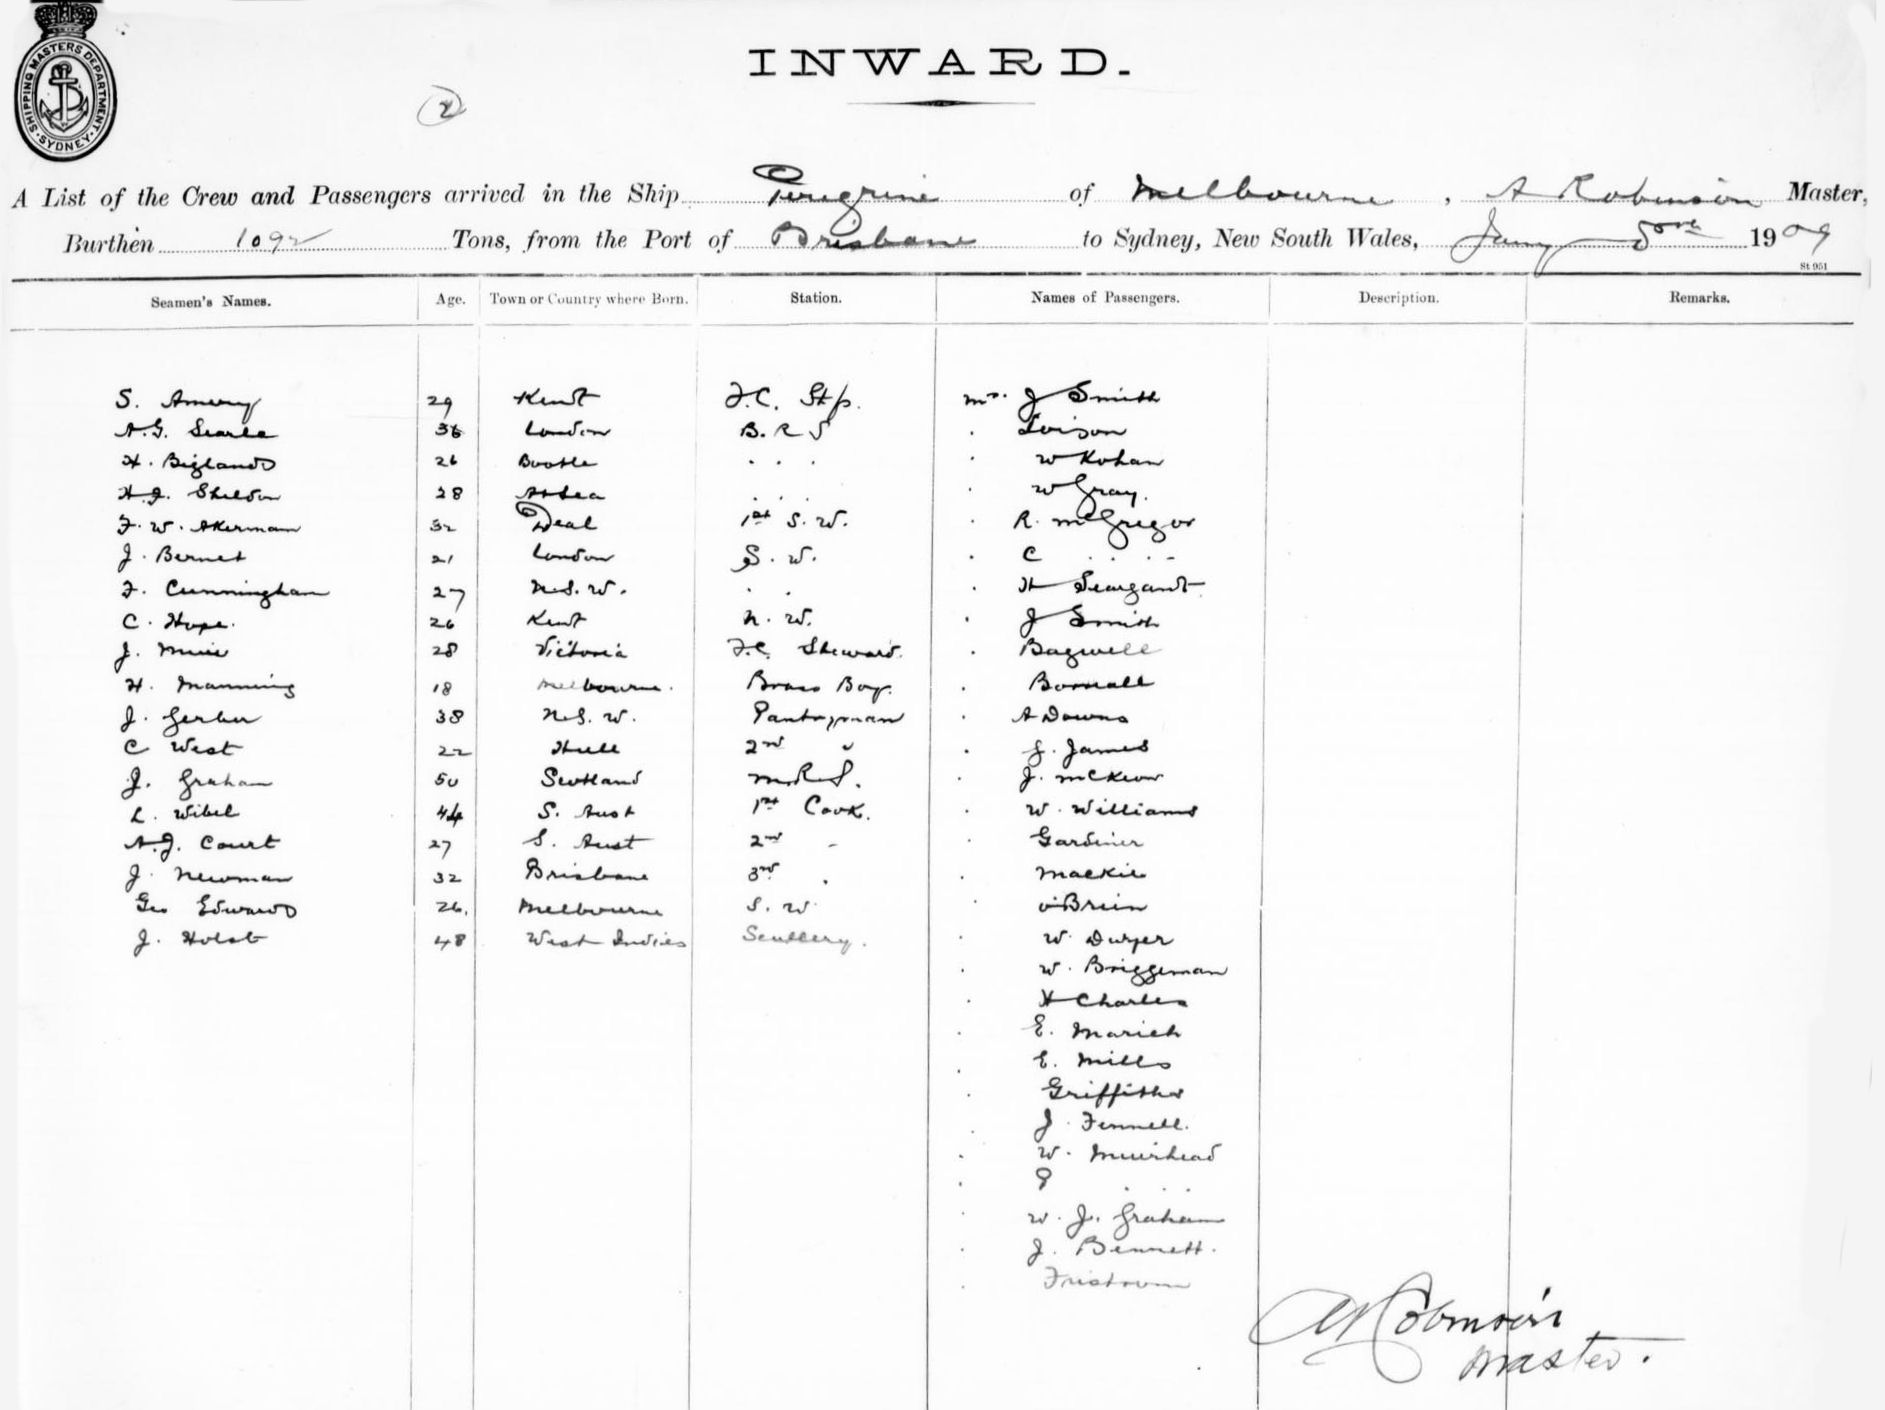 SHIPPING MASTERS DEPARTMENT. SYDNEY.
INWARD.
2
A List of the Crew and Passengers arrived in the Ship Peregrine of Melbourne, A Robinson Master,
Burthen 1092 Tons, from the Port of Brisbane to Sydney, New South Wales, Jany 1909
St 951
Seamen's Names. Age. Town or Country where Born. Station. Names of Passengers. Description. Remarks.
S. Amery 29 Kent F.C. Stp. Mr. J Smith
A.G. Searle 36 London B.R.S . Loison
H. Biglands 26 Bootle . . . . W Kohan
H.J. Sheldon 28 At Sea . . . . W Gray.
F. W. Akerman 32 Deal 1st S.W. . R. McGregor
J. Bernet 21 London S. W. . C . . -
F. Cunningham 27 N.S.W. . . . H Seargant
C. Hope. 26 Kent N. W. . J Smith
J. Muir 28 Victoria F.C. Steward. . Bagwell
H. Manning 18 Melbourne. Brass Boy. .
J. Gerber 38 N.S.W. Pantryman . A Downs
C West 22 Hull 2nd " . J. James
J. Graham 50 Scotland M.R.S. . J. McKeow
L. Wibel 44 S. Aust 1st Cook. . W. Williams
A.J. Court 27 S. Aust 2nd - . Gardiner
J. Newman 32 Brisbane 3rd . . Mackie
Geo Edwards 26. Melbourne S. W. . O'Brien
J. Holst 48 West Indies Scullery. . W. Dwyer
. W. Briggeman
. H Charles
. E. Marich
. E. Mills
. Griffiths
. J. Fennell.
. W. Muirhead
. P . . .
. W. J. Graham
. J. Bennett.
. Fristrom
A Robinson
Master.